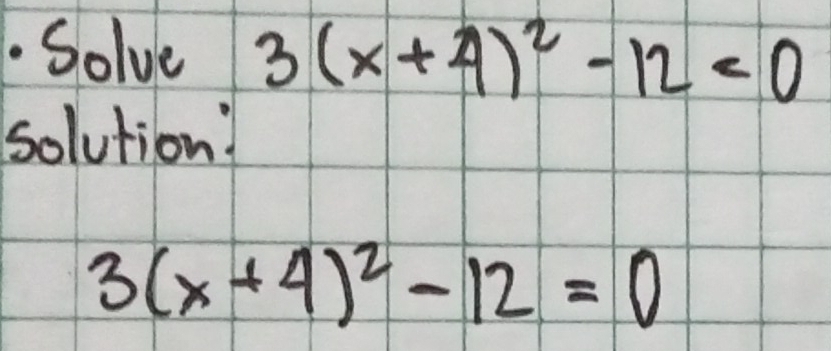 • Solve 3(x+4)² - 12 < 0
Solution:
3(x+4)² - 12 = 0